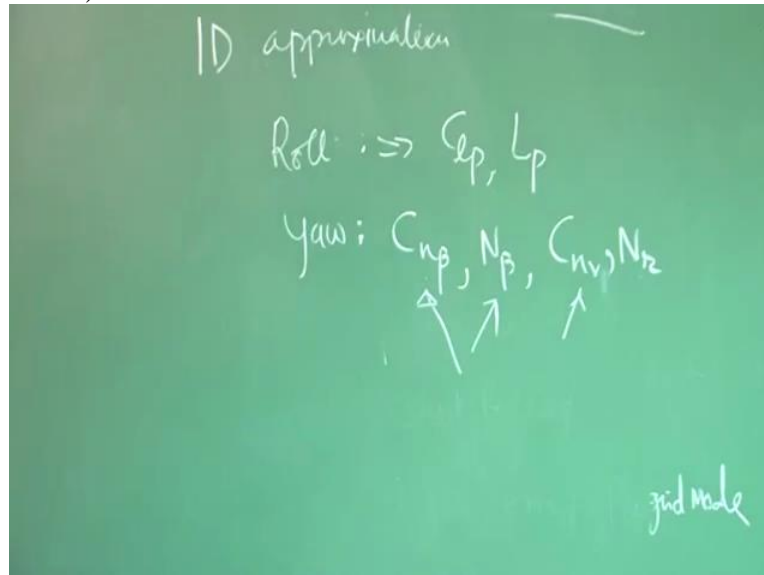 1D approximation
Roll : ⇒ Clp, Lp
Yaw : Cnβ, Nβ, Cnr, Nr